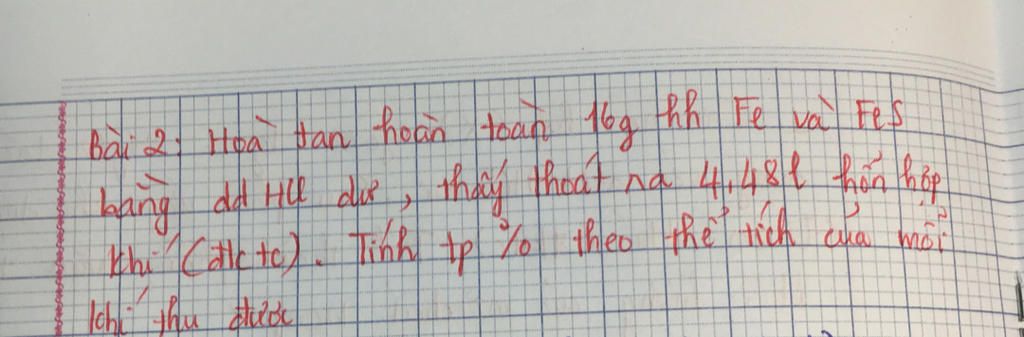 Bài 2: Hoà tan hoàn toàn 16g hh Fe và FeS
bằng dd HCl dư, thấy thoát ra 4,48l hỗn hợp
khí (đktc). Tính tp % theo thể tích của mỗi
khí thu được